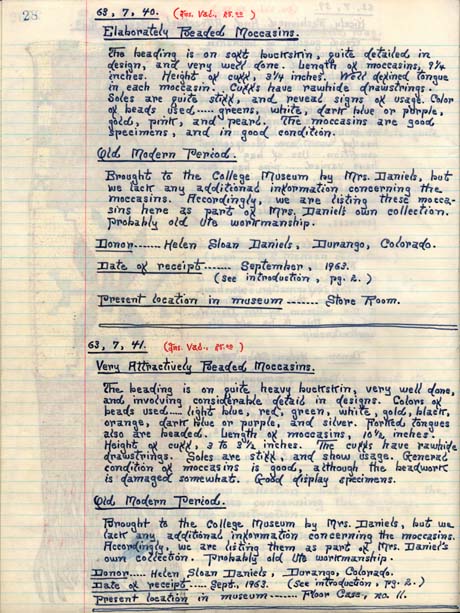 28
63, 7, 40. (Ins. Val., 25.00)
Elaborately Beaded Moccasins.
The beading is on soft buckskin, quite detailed in
design, and very well done. Length of moccasins, 9 3/4
inches. Height of cuff, 3 1/4 inches. Well defined tongue
in each moccasin. Cuffs have rawhide drawstrings.
Soles are quite stiff, and reveal signs of usage. Color
of beads used.... greens, white, dark blue or purple,
gold, pink, and pearl. The moccasins are good
specimens, and in good condition.
Old Modern Period.
Brought to the College Museum by Mrs. Daniels, but
we lack any additional information concerning the
moccasins. Accordingly, we are listing these mocca-
sins here as part of Mrs. Daniel's own collection.
Probably old Ute workmanship.
Donor...... Helen Sloan Daniels, Durango, Colorado.
Date of receipt....... September, 1963.
(See introduction, pg. 2.)
Present location in museum ....... Store Room.
63, 7, 41. (Ins. Val., 25.00)
Very Attractively Beaded Moccasins.
The beading is on quite heavy buckskin, very well done,
and involving considerable detail in designs. Colors of
beads used.... light blue, red, green, white, gold, black,
orange, dark blue or purple, and silver. Forked tongues
also are beaded. Length of moccasins, 10 1/2 inches.
Height of cuff, 3 to 3 1/2 inches. The cuffs have rawhide
drawstrings. Soles are stiff, and show usage. General
condition of moccasins is good, although the beadwork
is damaged somewhat. Good display specimens.
Old Modern Period.
Brought to the College Museum by Mrs. Daniels, but we
lack any additional information concerning the moccasins.
Accordingly, we are listing them as part of Mrs. Daniel's
own collection. Probably old Ute workmanship.
Donor.... Helen Sloan Daniels, Durango, Colorado.
Date of receipt.... Sept., 1963. (See introduction, pg. 2.)
Present location in museum .... Floor Case, no. 11.